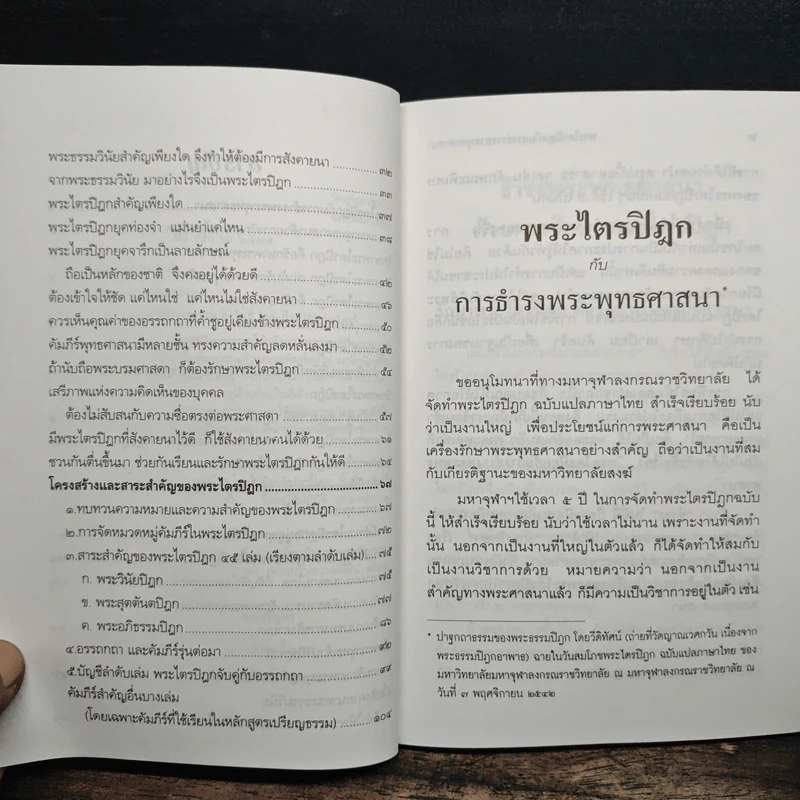 พระธรรมวินัยสำคัญเพียงใด จึงทำให้ต้องมีการสังคายนา ..........๓๒
จากพระธรรมวินัย มาอย่างไรจึงเป็นพระไตรปิฎก ..........๓๓
พระไตรปิฎกสำคัญเพียงใด ..........๓๗
พระไตรปิฎกยุคท่องจำ แม่นยำแค่ไหน ..........๓๘
พระไตรปิฎกยุคจารึกเป็นลายลักษณ์
ถือเป็นหลักของชาติ จึงคงอยู่ได้ด้วยดี ..........๔๒
ต้องเข้าใจให้ชัด แค่ไหนใช่ แค่ไหนไม่ใช่สังคายนา ..........๔๖
ควรเห็นคุณค่าของอรรถกถาที่ค้ำชูอยู่เคียงข้างพระไตรปิฎก ..........๕๐
คัมภีร์พุทธศาสนามีหลายชั้น ทรงความสำคัญลดหลั่นลงมา ..........๕๒
ถ้านับถือพระบรมศาสดา ก็ต้องรักษาพระไตรปิฎก ..........๕๔
เสรีภาพแห่งความคิดเห็นของบุคคล
ต้องไม่สับสนกับความซื่อตรงต่อพระศาสดา ..........๕๗
มีพระไตรปิฎกที่สังคายนาไว้ดี ก็ใช้สังคายนาคนได้ด้วย ..........๖๑
ชวนกันตื่นขึ้นมา ช่วยกันเรียนและรักษาพระไตรปิฎกกันให้ดี ..........๖๔
โครงสร้างและสาระสำคัญของพระไตรปิฎก ..........๖๗
๑.ทบทวนความหมายและความสำคัญของพระไตรปิฎก ..........๖๗
๒.การจัดหมวดหมู่คัมภีร์ในพระไตรปิฎก ..........๗๒
๓.สาระสำคัญของพระไตรปิฎก ๔๕ เล่ม (เรียงตามลำดับเล่ม) ..........๗๕
ก. พระวินัยปิฎก ..........๗๕
ข. พระสุตตันตปิฎก ..........๗๗
ค. พระอภิธรรมปิฎก ..........๘๖
๔.อรรถกถา และคัมภีร์รุ่นต่อมา ..........๙๒
๕.บัญชีลำดับเล่ม พระไตรปิฎกจับคู่กับอรรถกถา ..........๙๙
คัมภีร์สำคัญอื่นบางเล่ม
(โดยเฉพาะคัมภีร์ที่ใช้เรียนในหลักสูตรเปรียญธรรม) ..........๑๐๔
พระไตรปิฎก
กับ
การธำรงพระพุทธศาสนา*
ขออนุโมทนาที่ทางมหาจุฬาลงกรณราชวิทยาลัย ได้
จัดทำพระไตรปิฎก ฉบับแปลภาษาไทย สำเร็จเรียบร้อย นับ
ว่าเป็นงานใหญ่ เพื่อประโยชน์แก่การพระศาสนา คือเป็น
เครื่องรักษาพระพุทธศาสนาอย่างสำคัญ ถือว่าเป็นงานที่สม
กับเกียรติฐานะของมหาวิทยาลัยสงฆ์
มหาจุฬาฯใช้เวลา ๕ ปี ในการจัดทำพระไตรปิฎกฉบับ
นี้ ให้สำเร็จเรียบร้อย นับว่าใช้เวลาไม่นาน เพราะงานที่จัดทำ
นั้น นอกจากเป็นงานที่ใหญ่ในตัวแล้ว ก็ได้จัดทำให้สมกับ
เป็นงานวิชาการด้วย หมายความว่า นอกจากเป็นงาน
สำคัญทางพระศาสนาแล้ว ก็มีความเป็นวิชาการอยู่ในตัว เช่น
* ปาฐกถาธรรมของพระธรรมปิฎก โดยวีดิทัศน์ (ถ่ายที่วัดญาณเวศกวัน เนื่องจาก
พระธรรมปิฎกอาพาธ) ฉายในวันสมโภชพระไตรปิฎก ฉบับแปลภาษาไทย ของ
มหาวิทยาลัยมหาจุฬาลงกรณราชวิทยาลัย ณ มหาจุฬาลงกรณราชวิทยาลัย ณ
วันที่ ๗ พฤศจิกายน ๒๕๔๒